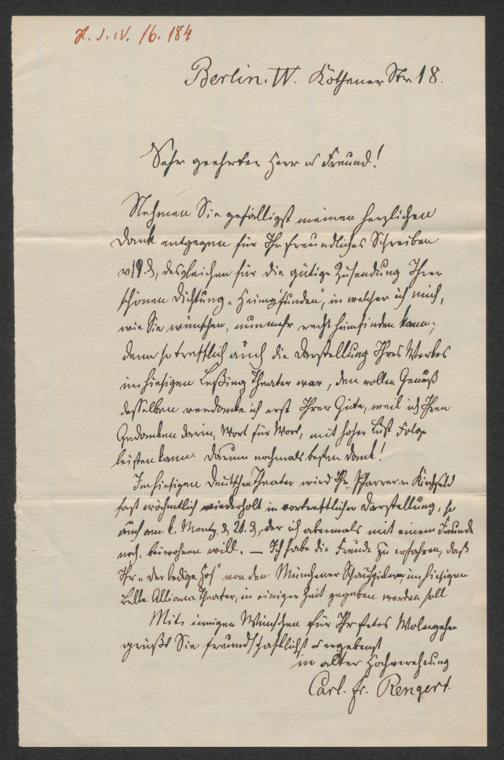 H. I. N. 16.184
Berlin. W. Köthener Str. 18.
Sehr geehrter Herr u Freund!
Nehmen Sie gefälligst meinen herzlichen
Dank entgegen für Ihr freundliches Schreiben
v 19. d, desgleichen für die gütige Zusendung Ihrer
schönen Dichtung „Heimgfunden“, in welcher ich mich,
wie Sie wünschen, nunmehr recht heimfinden kann;
denn so trefflich auch die Darstellung Ihres Werkes
im hiesigen Lessing Theater war, den vollen Genuß
desselben verdanke ich erst Ihrer Güte, weil ich Ihren
Gedanken darin, Wort für Wort, mit hoher Lust Folge
leisten kann. Darum nochmals besten Dank!
Im hiesigen Deutschen Theater wird Ihr Pfarrer v Kirchfeld
fast wöchentlich wiederholt in vortrefflicher Darstellung, so
auch am k. Montg, d. 21. d, der ich abermals mit einem Freunde
noch beiwohnen will. — Ich habe die Freude zu erfahren, daß
Ihr „Der ledige Hof“ von den Münchener Schauspielern, im hiesigen
Belle Alliance Theater, in einiger Zeit gegeben werden soll.
Mit innigen Wünschen für Ihr stetes Wolergehen
grüßt Sie freundschaftlichst u ergebenst
in alter Hochverehrung
Carl. Fr. Rengert.